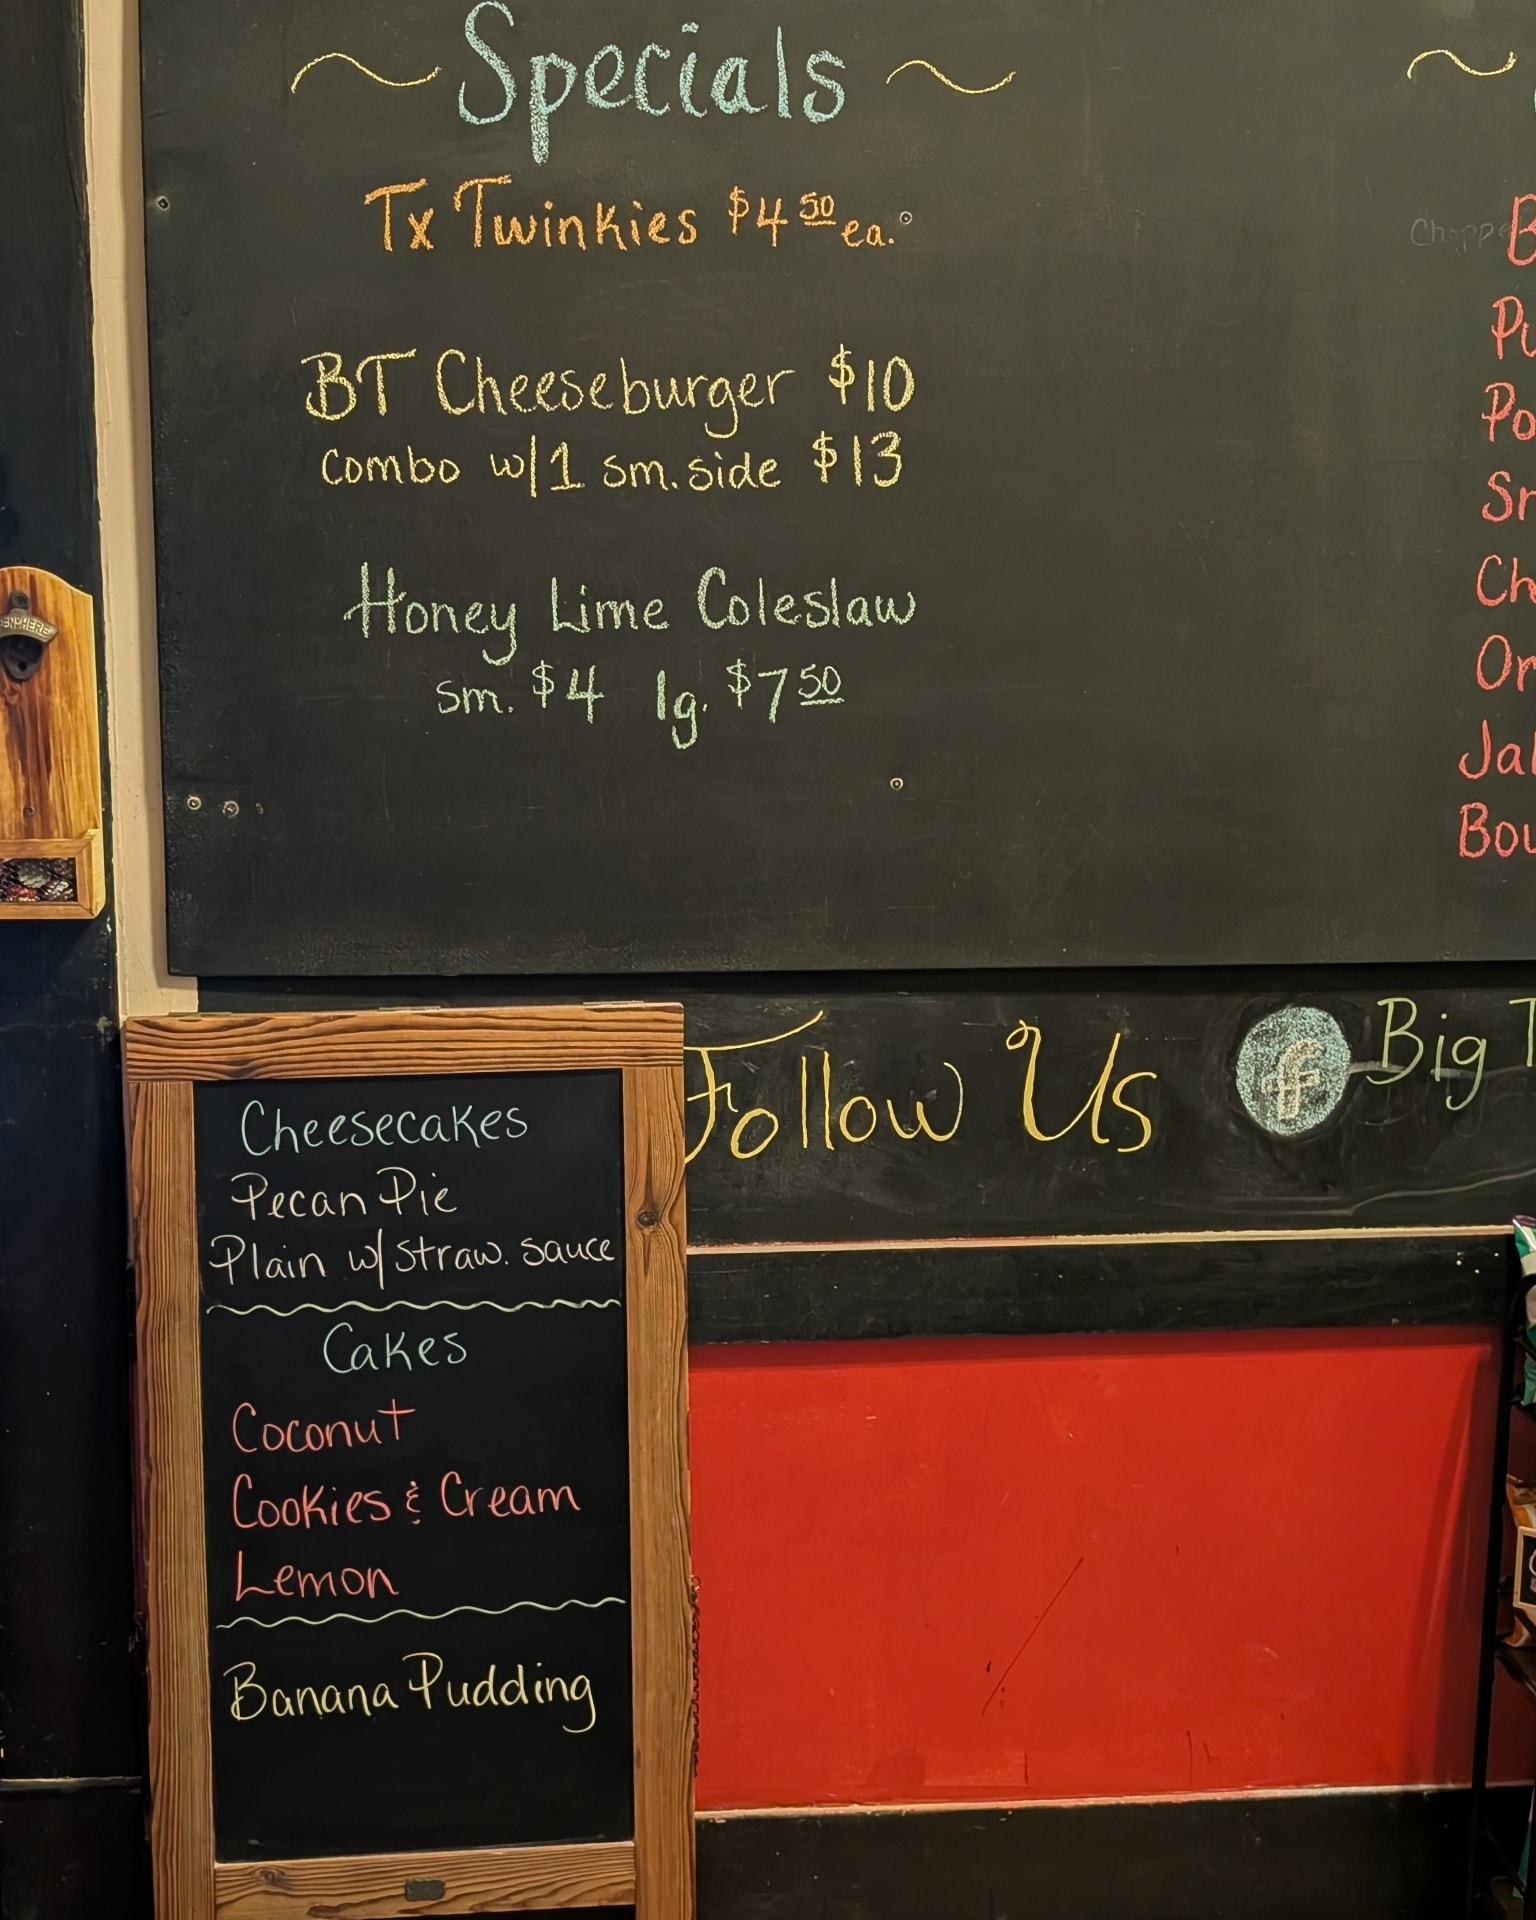 Specials
Tx Twinkies $4 50 ea.
BT Cheeseburger $10
combo w/1 sm. side $13
Honey Lime Coleslaw
sm. $4 lg. $7 50
Follow Us f Big
Cheesecakes
Pecan Pie
Plain w/ straw. sauce
Cakes
Coconut
Cookies & Cream
Lemon
Banana Pudding